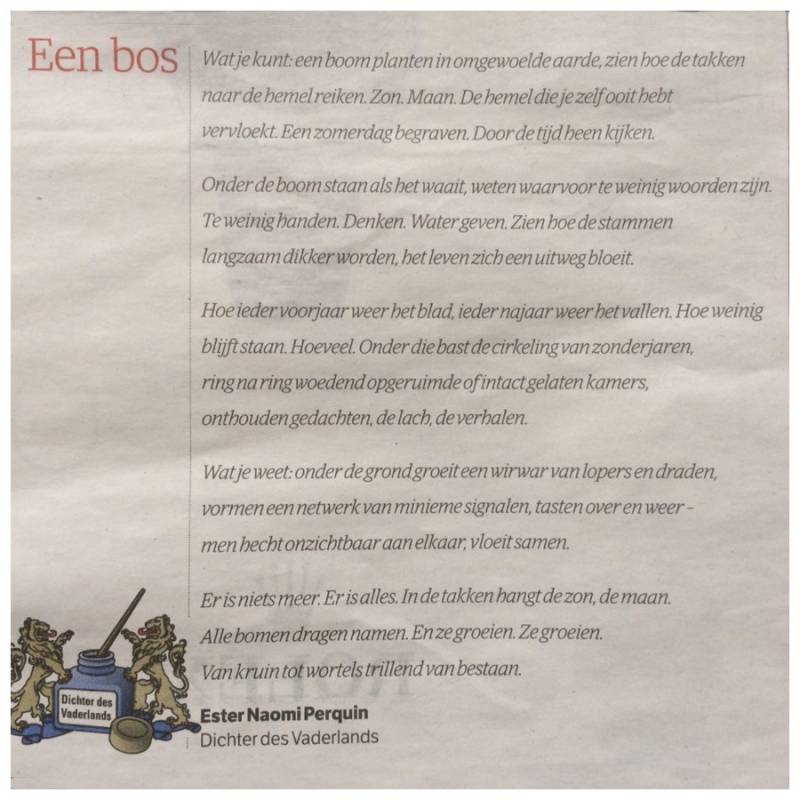 Een bos
Wat je kunt: een boom planten in omgewoelde aarde, zien hoe de takken
naar de hemel reiken. Zon. Maan. De hemel die je zelf ooit hebt
vervloekt. Een zomerdag begraven. Door de tijd heen kijken.
Onder de boom staan als het waait, weten waarvoor te weinig woorden zijn.
Te weinig handen. Denken. Water geven. Zien hoe de stammen
langzaam dikker worden, het leven zich een uitweg bloeit.
Hoe ieder voorjaar weer het blad, ieder najaar weer het vallen. Hoe weinig
blijft staan. Hoeveel. Onder die bast de cirkeling van zonderjaren,
ring na ring woedend opgeruimde of intact gelaten kamers,
onthouden gedachten, de lach, de verhalen.
Wat je weet: onder de grond groeit een wirwar van lopers en draden,
vormen een netwerk van minieme signalen, tasten over en weer –
men hecht onzichtbaar aan elkaar, vloeit samen.
Er is niets meer. Er is alles. In de takken hangt de zon, de maan.
Alle bomen dragen namen. En ze groeien. Ze groeien.
Van kruin tot wortels trillend van bestaan.
Dichter des
Vaderlands
Ester Naomi Perquin
Dichter des Vaderlands